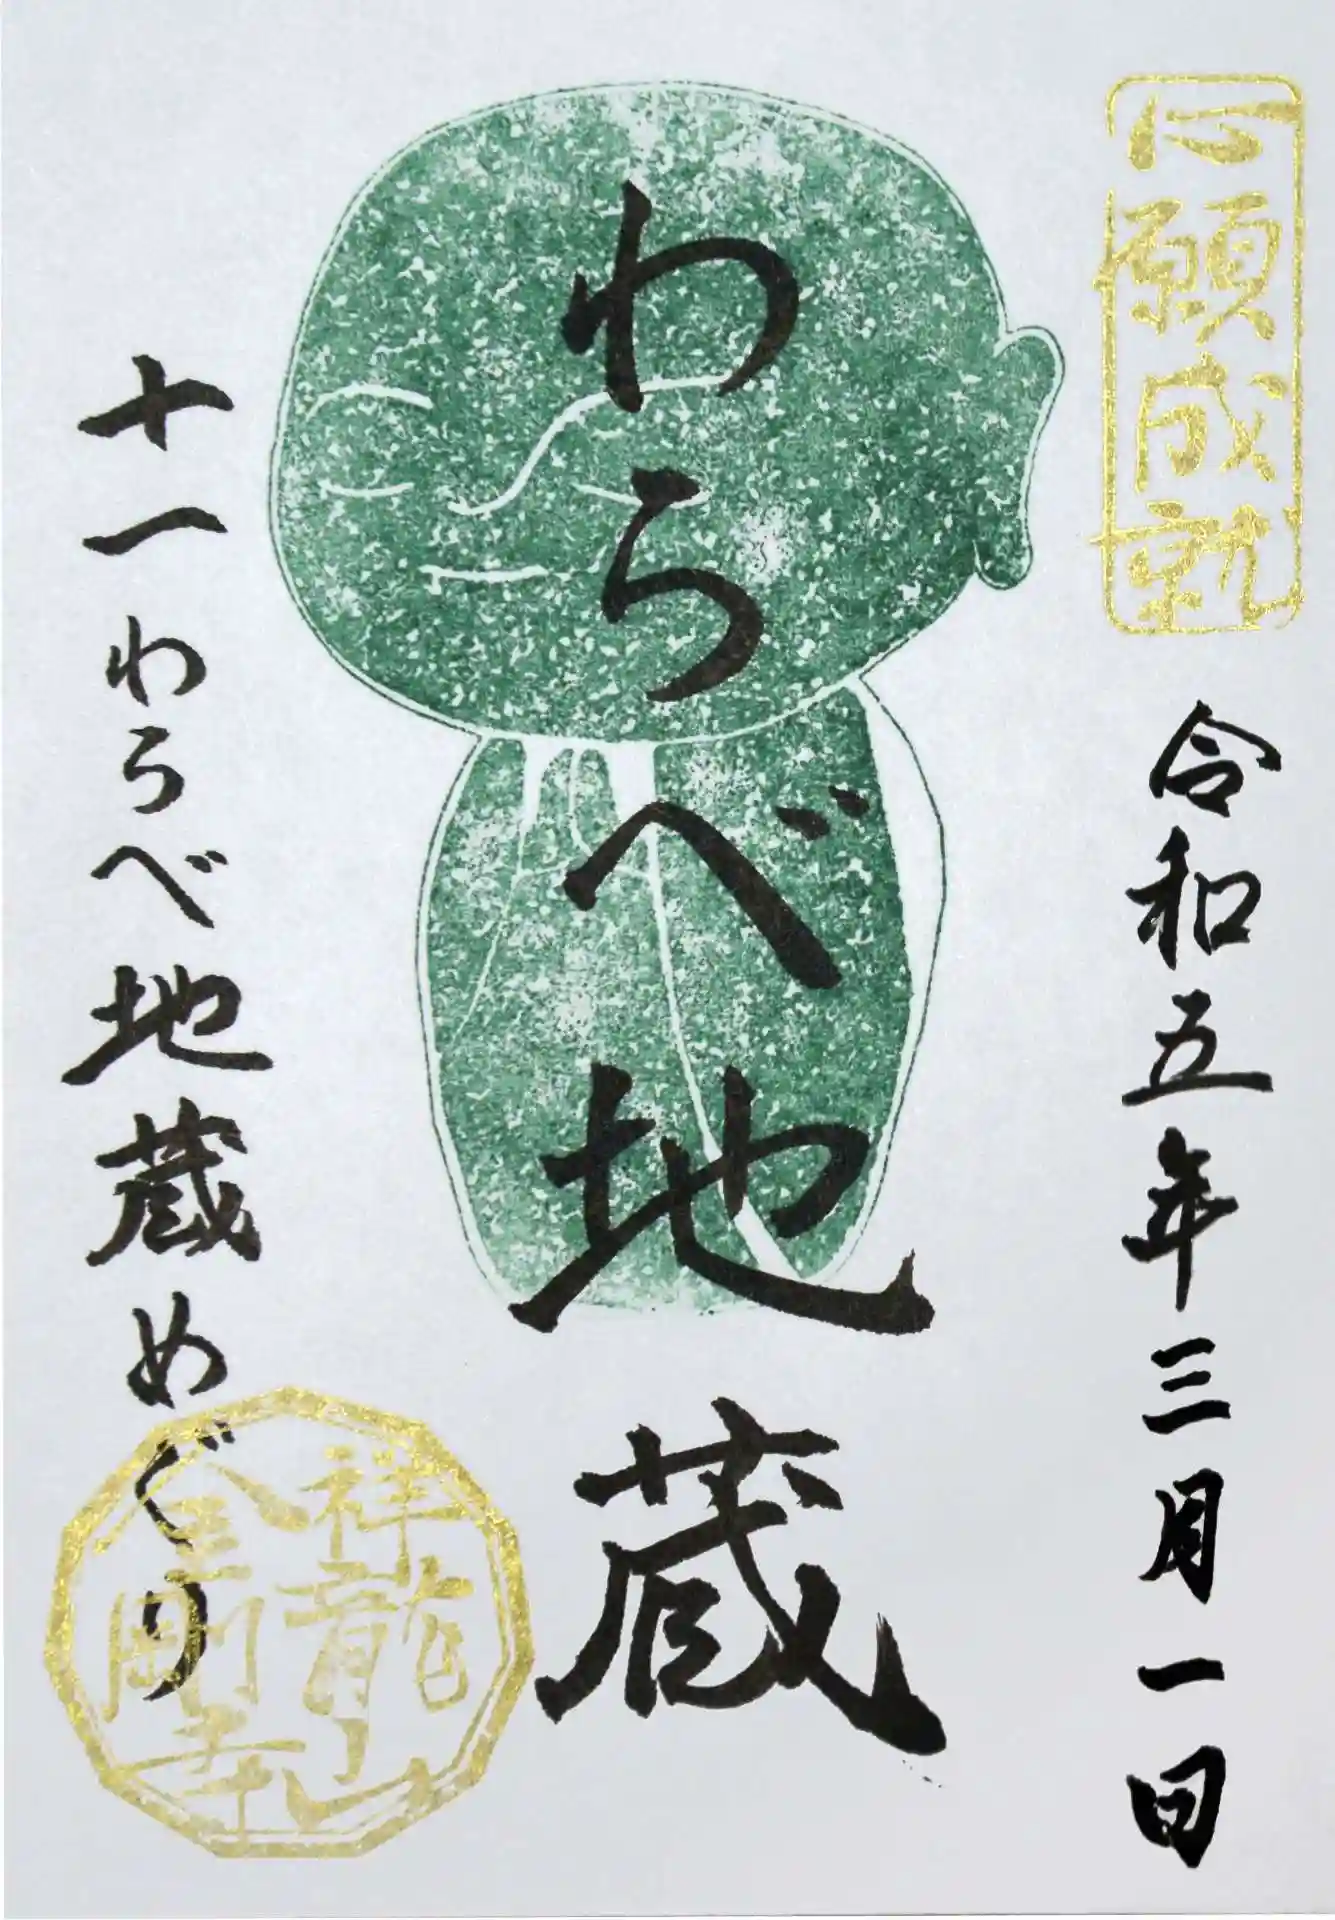 心願成就
令和五年三月一日
わらべ地蔵
十一わらべ地蔵めぐり
祥龍山
金剛寺